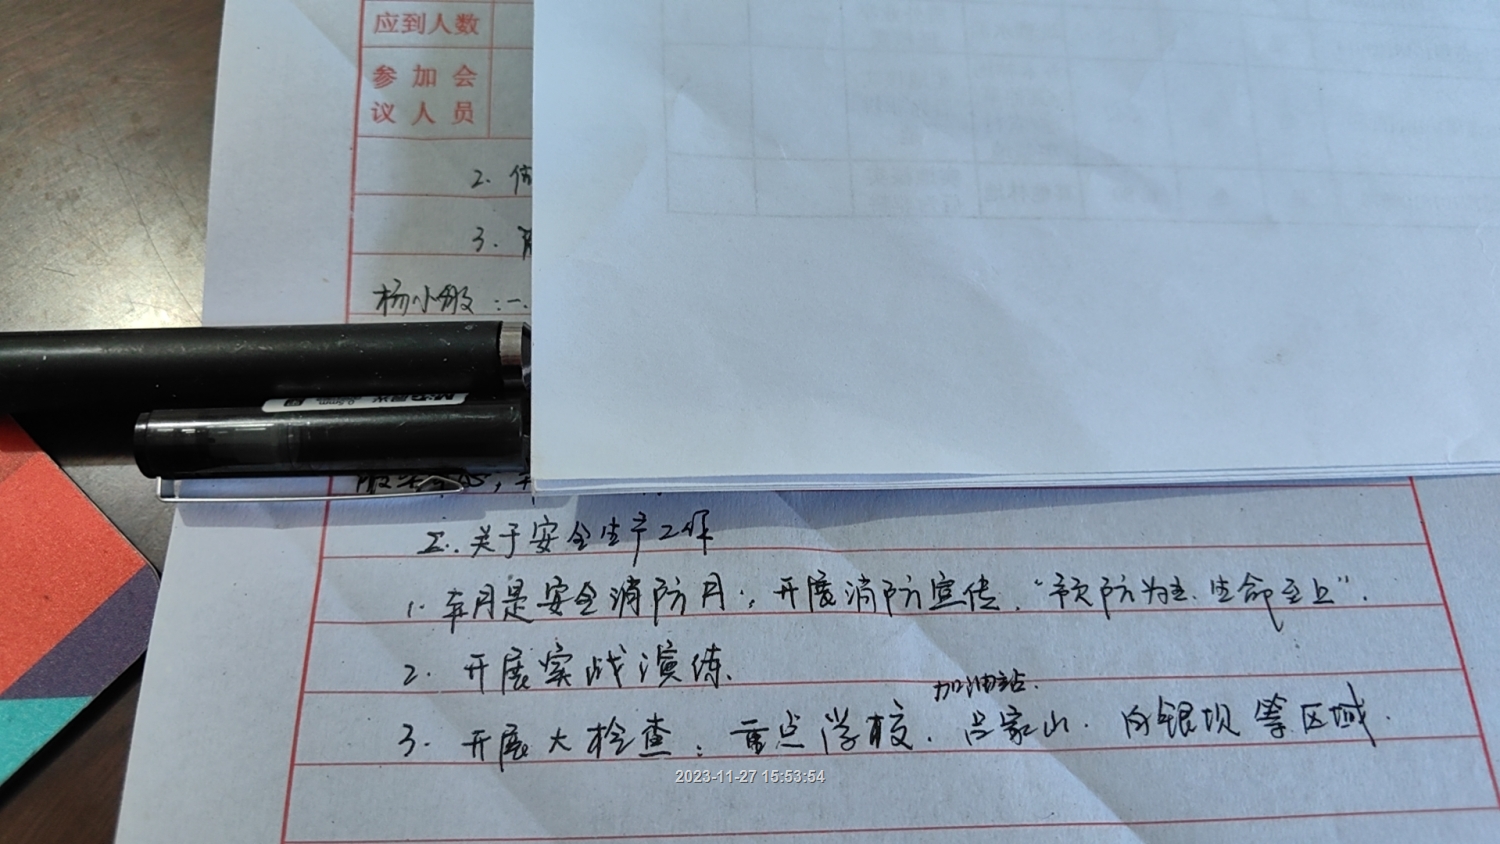 应到人数
参加会
议人员
2.
3.
杨小敏：一.
二.关于安全生产工作
1.本月是安全消防月.，开展消防宣传.“预防为主.生命至上”.
2.开展实战演练.
加油站.
3.开展大检查：重点学校.吕家山.白银坝等区域.
2023-11-27 15:53:54